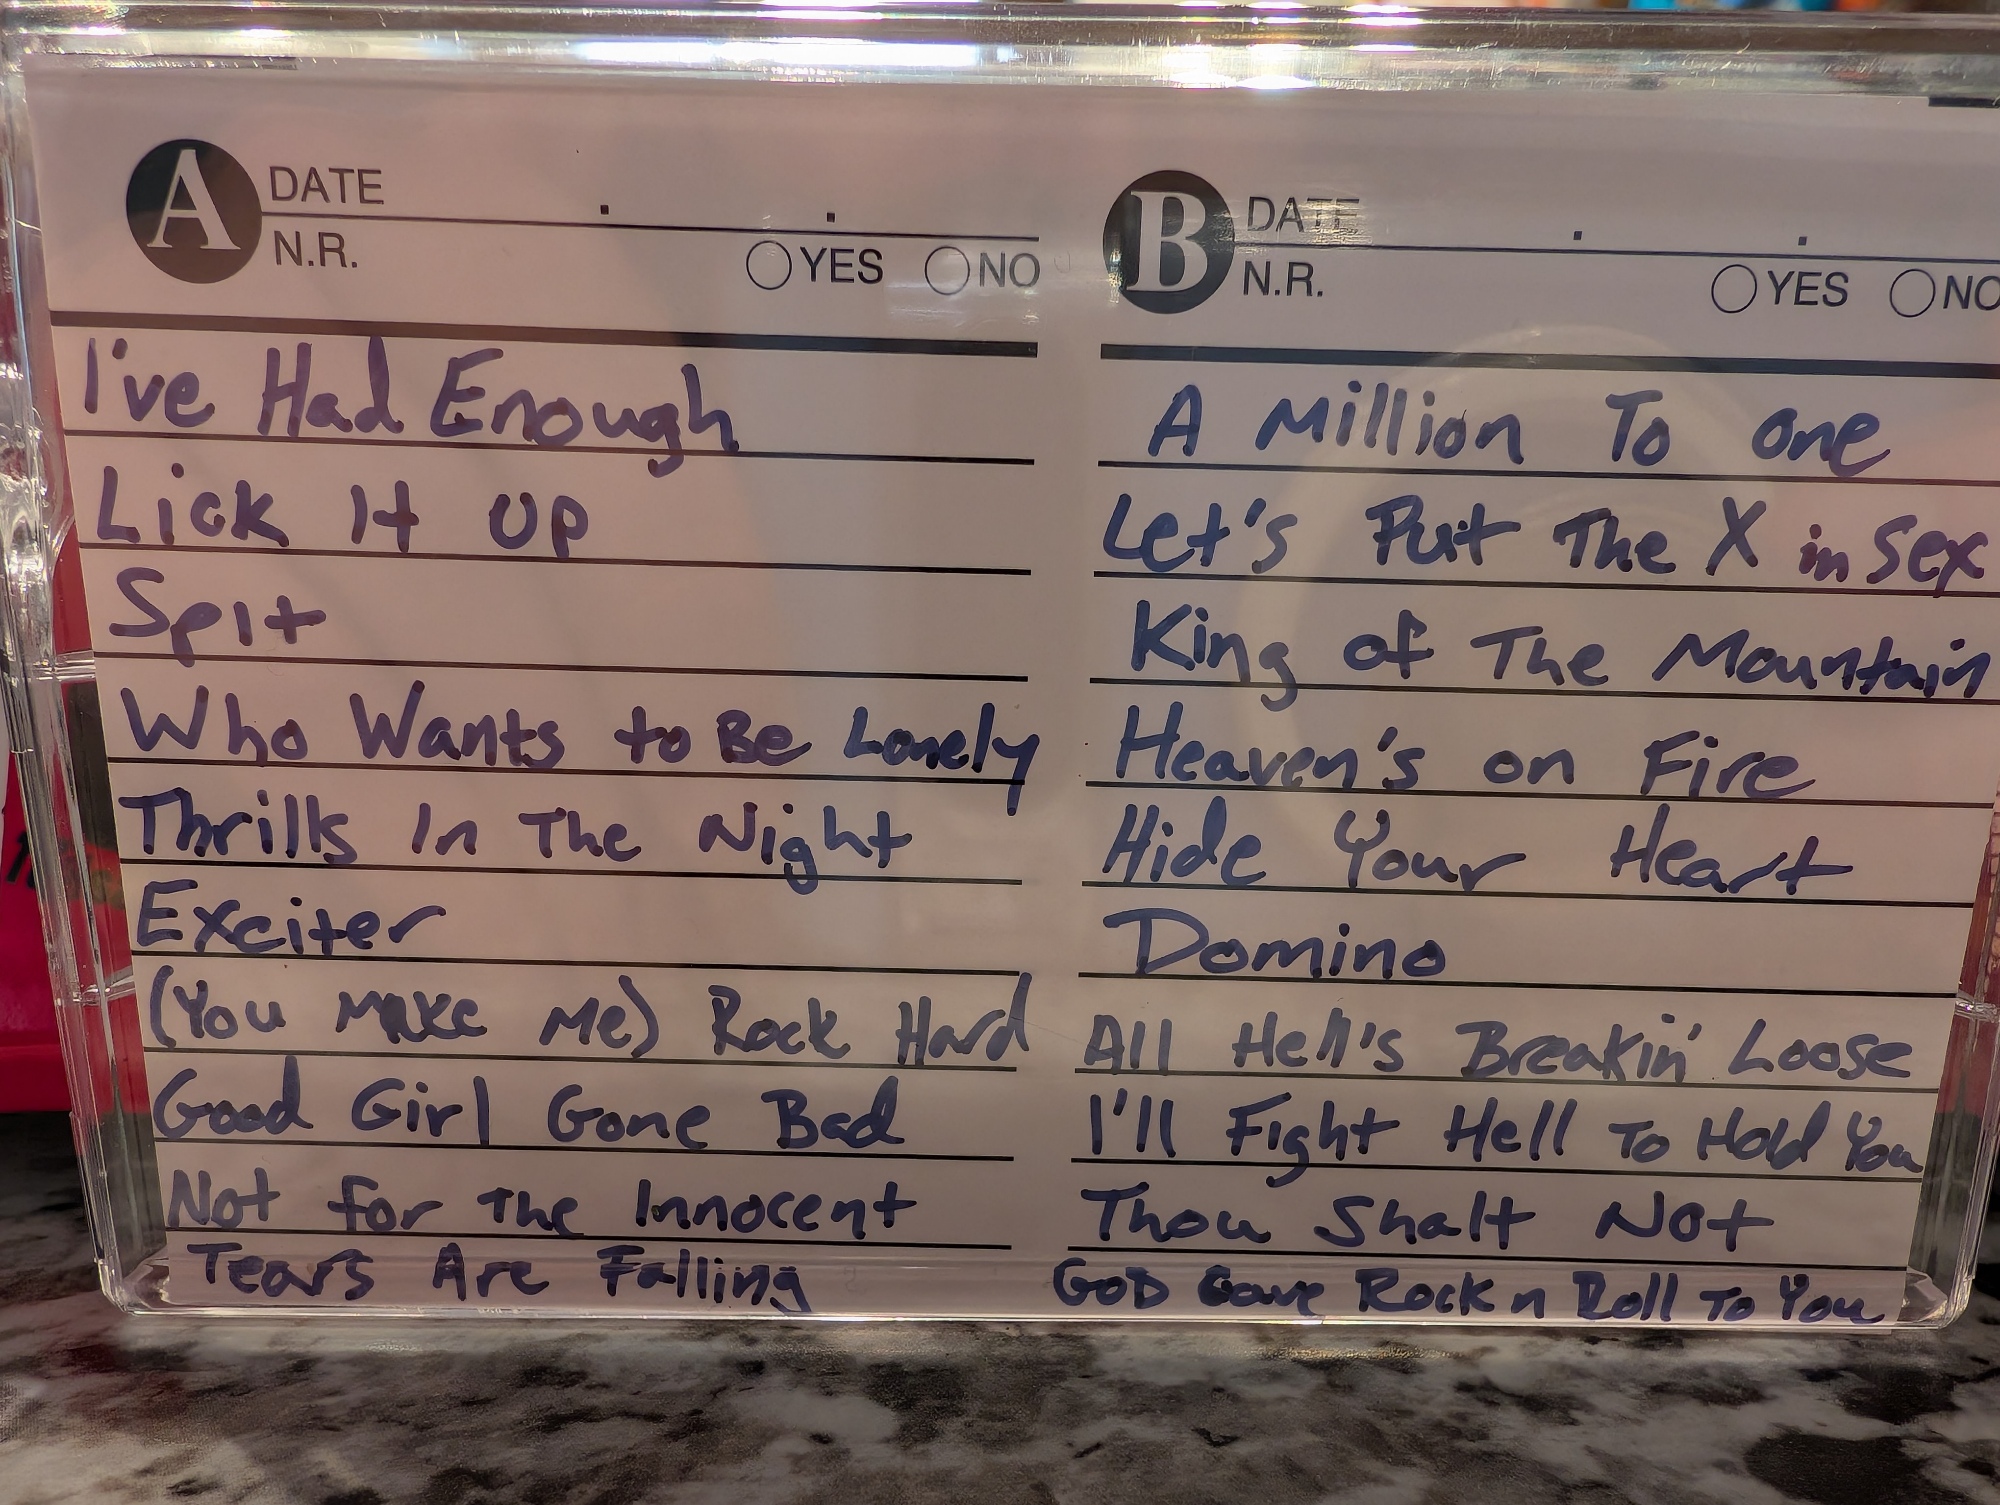 A DATE . .
N.R. YES NO
I've Had Enough
Lick It Up
Spit
Who Wants to Be Lonely
Thrills In The Night
Exciter
(You Make Me) Rock Hard
Good Girl Gone Bad
Not for The Innocent
Tears Are Falling
B DATE . .
N.R. YES NO
A Million To One
Let's Put The X in Sex
King of The Mountain
Heaven's on Fire
Hide Your Heart
Domino
All Hell's Breakin' Loose
I'll Fight Hell To Hold You
Thou Shalt Not
GOD Gave Rock n Roll To You